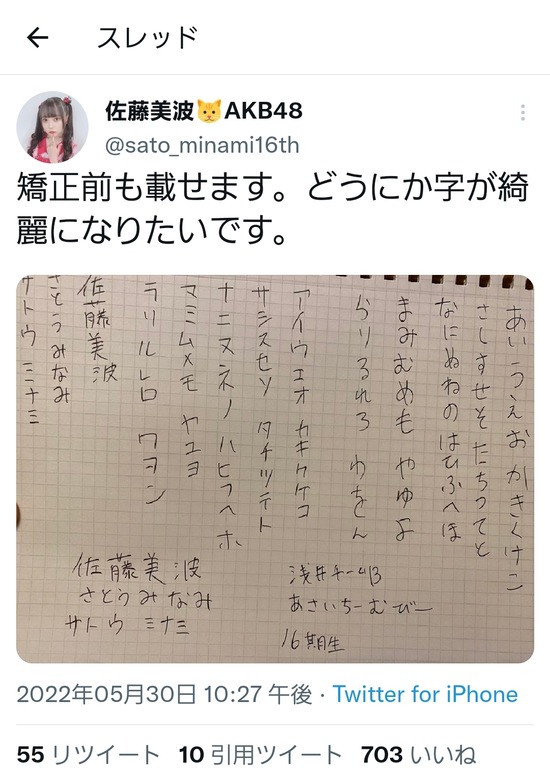 スレッド
佐藤美波🐱AKB48
@sato_minami16th
矯正前も載せます。どうにか字が綺
麗になりたいです。
あいうえお かきくけこ
さしすせそ たちつてと
なにぬねの はひふへほ
まみむめも やゆよ
らりるれろ わをん
アイウエオ カキクケコ
サシスセソ タチツテト
ナニヌネノ ハヒフヘホ
マミムメモ ヤユヨ
ラリルレロ ワヲン
佐藤美波
さとうみなみ
サトウ ミナミ
佐藤美波
さとうみなみ
サトウ ミナミ
浅井チームB
あさいちーむびー
16期生
2022年05月30日 10:27 午後 · Twitter for iPhone
55 リツイート 10 引用ツイート 703 いいね